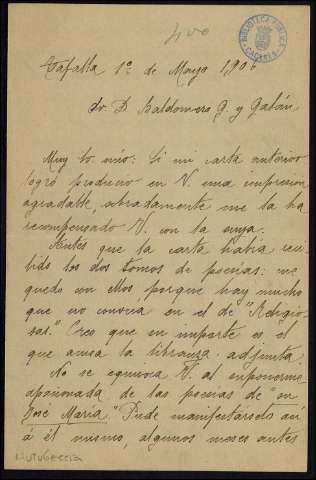 Tafalla 1º de Mayo 1,906
Sr. D. Baldomero G. y Galán
Muy Sr. mio: Si mi carta anterior
logró producir en V. una impresion
agradable, sobradamente me la ha
recompensado V. con la suya.
Antes que la carta habia reci-
bido los dos tomos de poesias: me
quedo con ellos, porque hay mucho
que no conocia en el de "Religio-
sas." Creo que su importe es el
que acusa la libranza adjunta.
No se equivoca V. al suponerme
apasionada de las poesias de "su
José Maria." Pude manifestárselo asi
á él mismo, algunos meses antes
BIBLIOTECA PUBLICA
CACERES